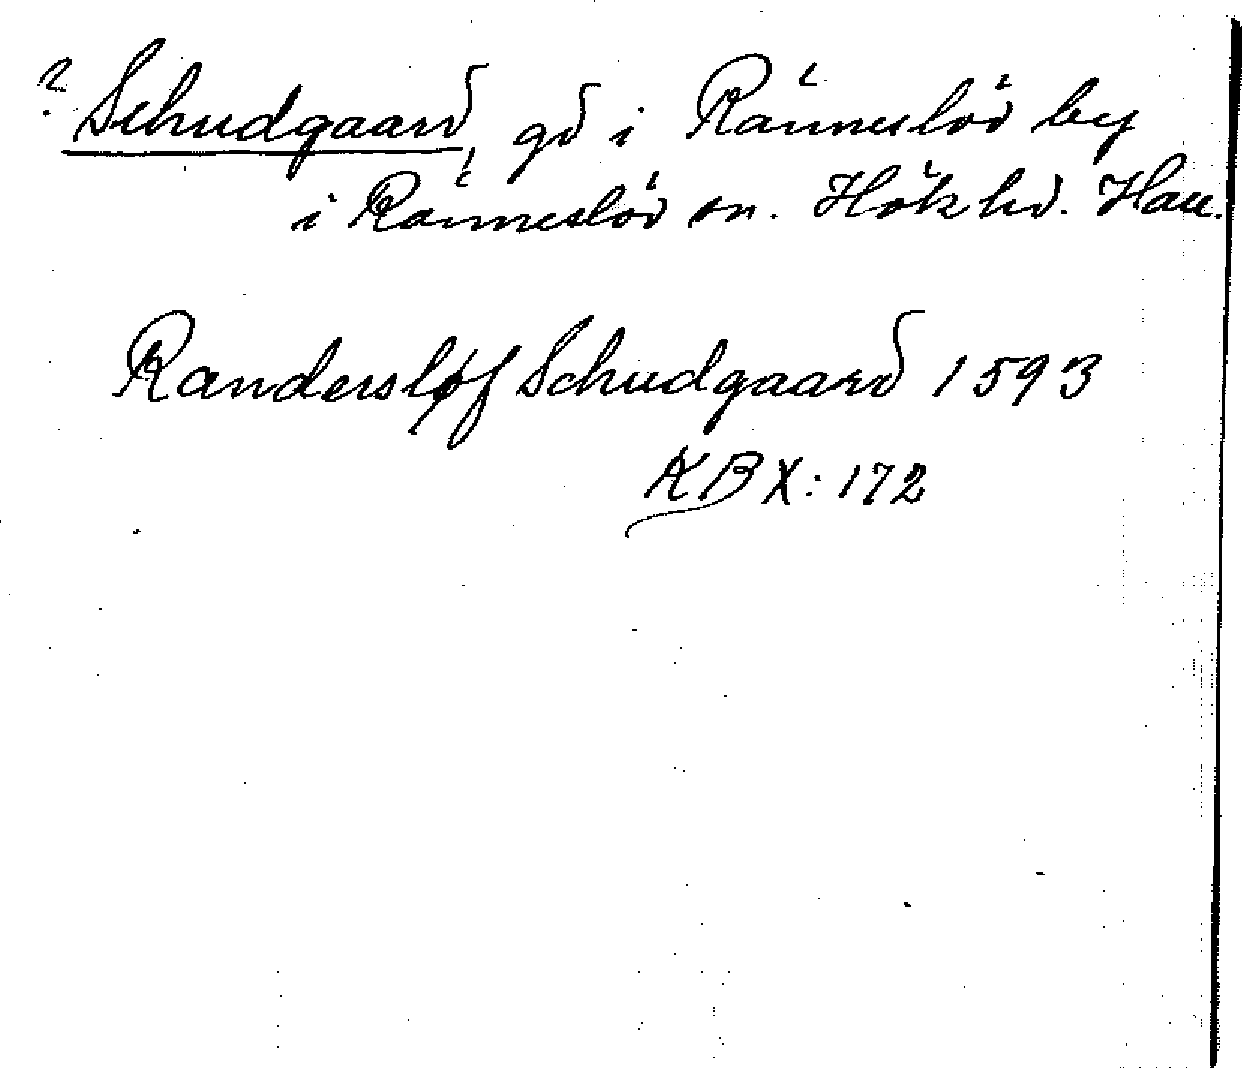 ? Schudgaard, gd i Ränneslöv by
i Ränneslöv sn. Höks hd. Hall.
Randersløf Schudgaard 1593
KB X: 172